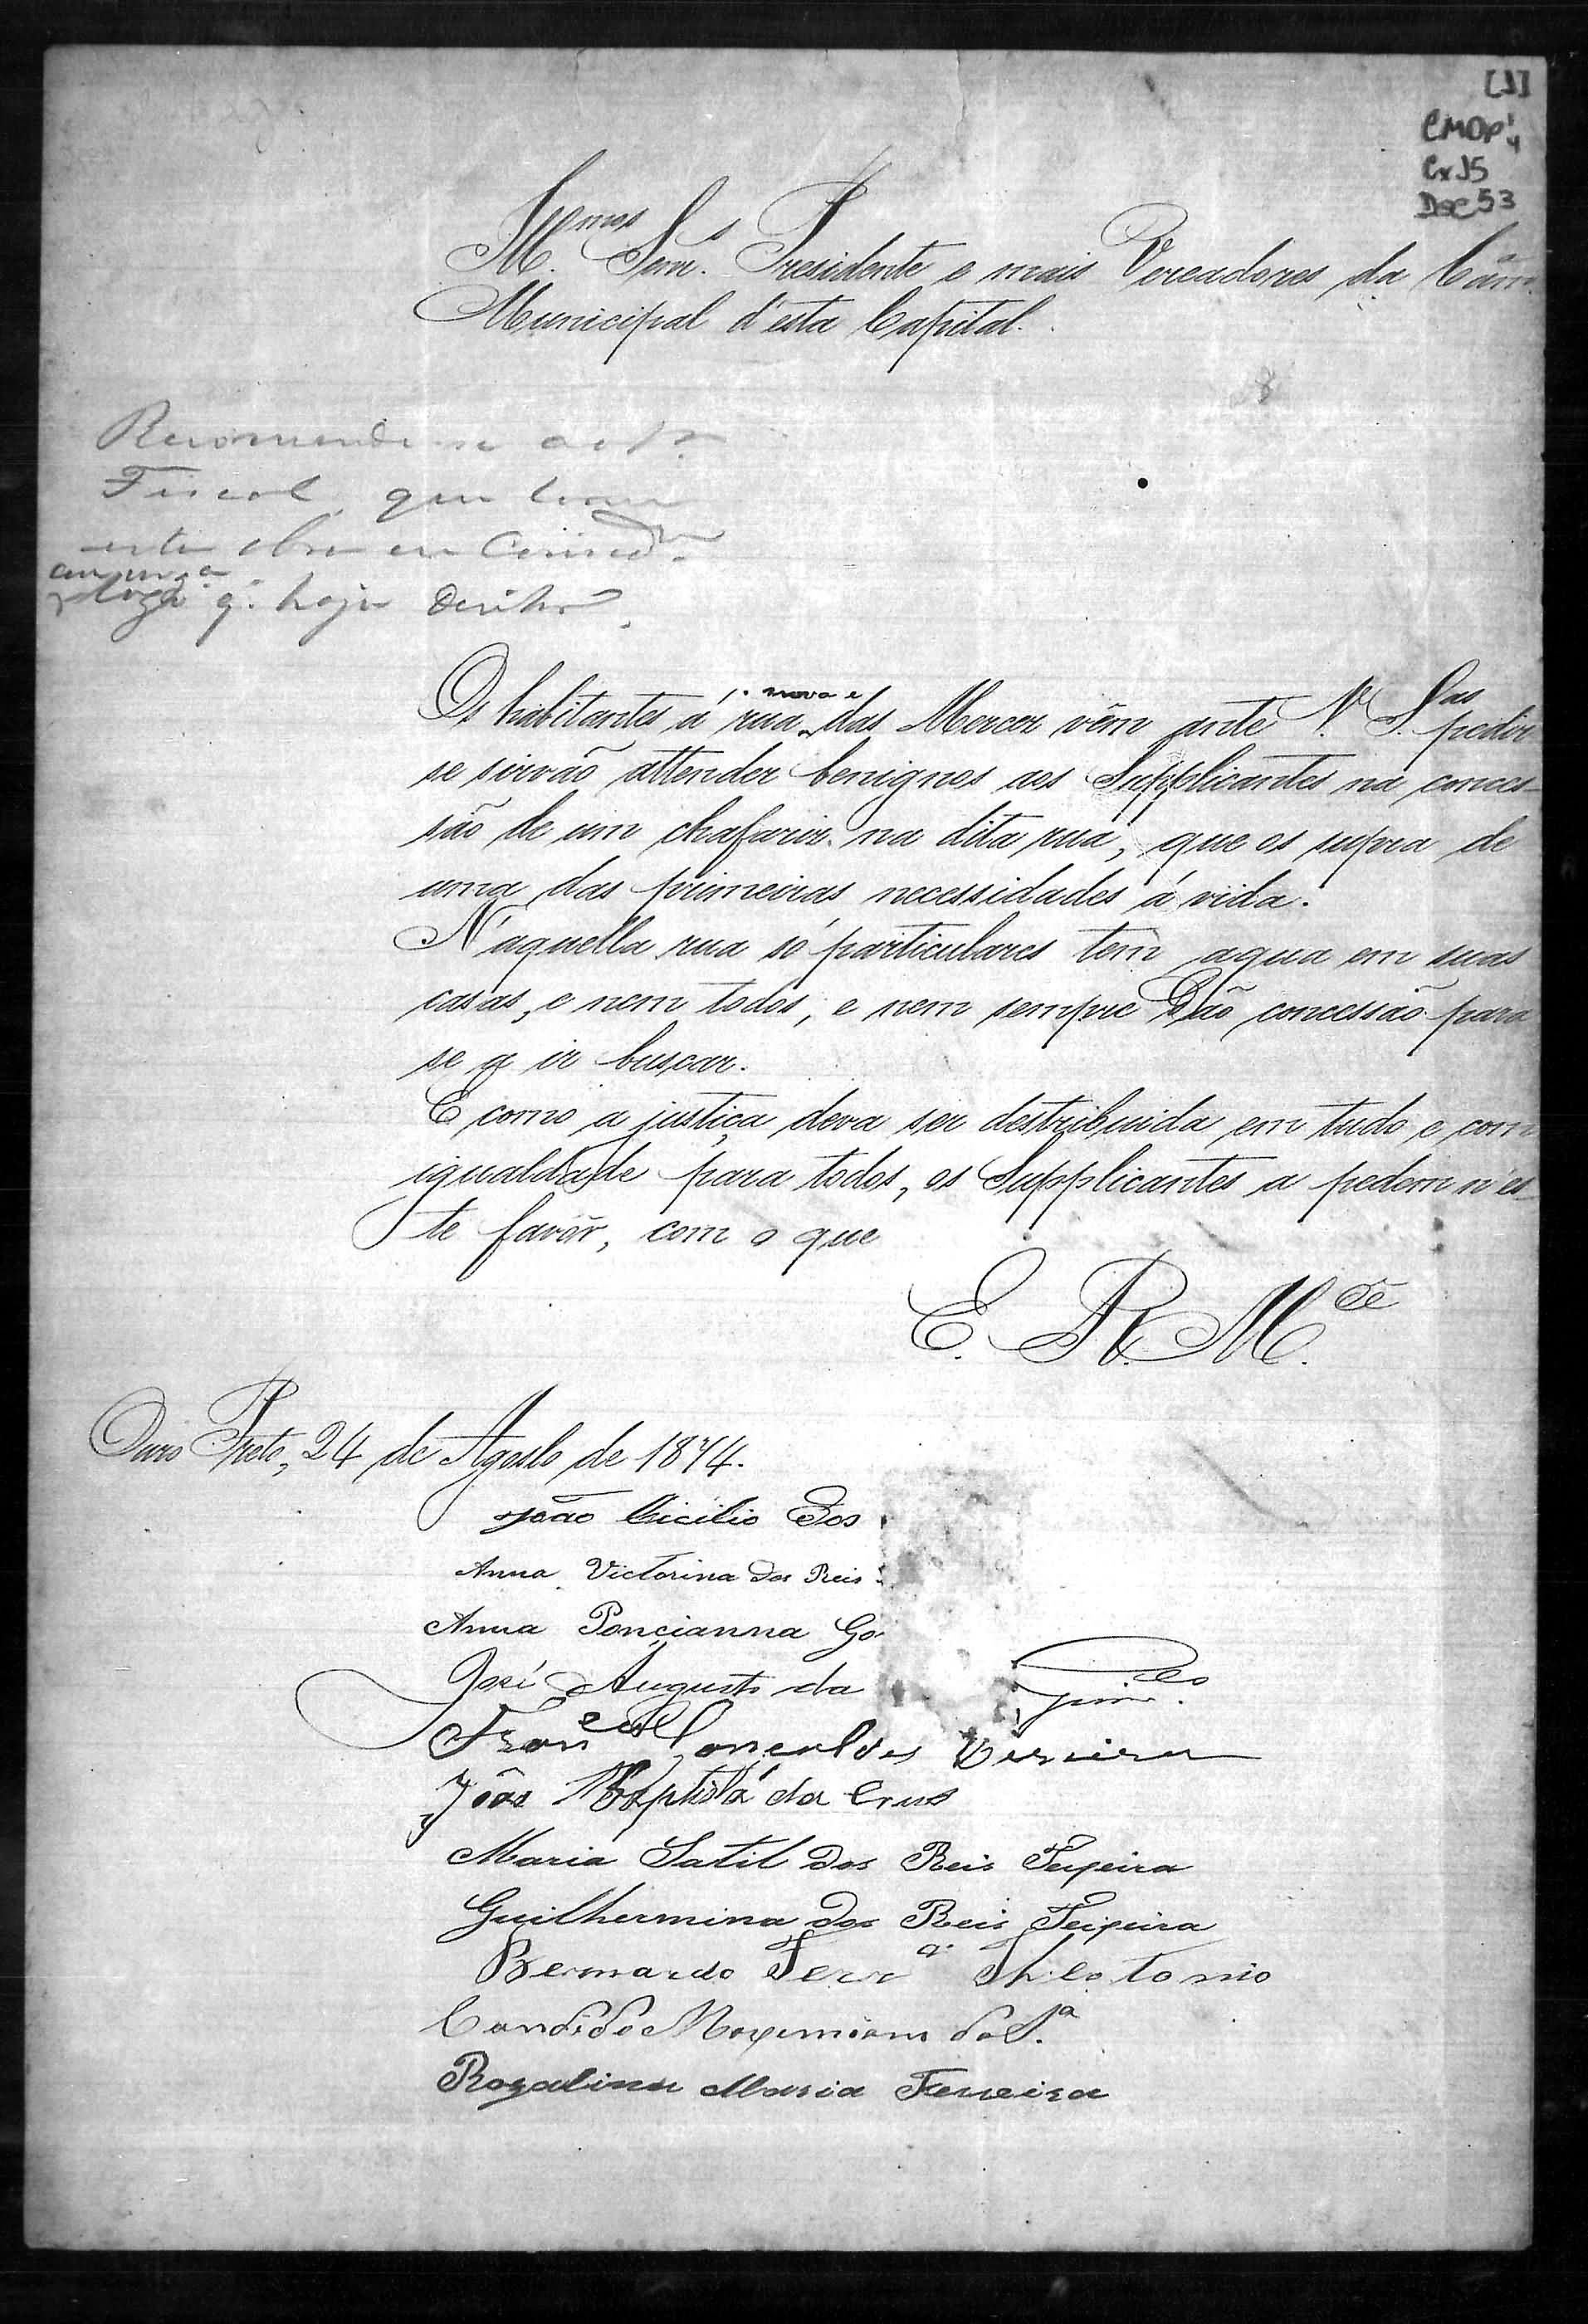 [1]
CMOP
Cx 15
Doc 53
Ill.mos Senr.s Presidente e mais Vereadores da Câm.
Municipal d'esta Capital.
Recomenda-se ao Sr.
Fiscal, que tome
esta obra em
q. haja dinhr.o
nova e
Os habitantes á rua das Mercez vêm ante V. S.as pedir
se sirvão attender benignos aos Supplicantes na conces-
são de um chafariz na dita rua, que os supra de
uma das primeiras necessidades á vida.
N'aquella rua só particulares tem agua em suas
casas, e nem todos, e nem sempre dão concessão para
se a ir buscar.
E como a justiça deva ser destribuida em tudo e com
igualdade para todos, os Supplicantes a pedem n'es-
te favôr, com o que
E. R. M.ce
Ouro Preto, 24 de Agosto de 1874.
João Cicilio dos
Anna Victorina dos Reis
Anna Poncianna Go
José Augusto da
Fran.co Gonçalves
João Baptista da Crus
Maria Satil dos Reis Teixeira
Guilhermina dos Reis Teixeira
Bernardo Ferr.a Theotonio
Candido Maximiano da S.a
Rozalina Maria Ferreira